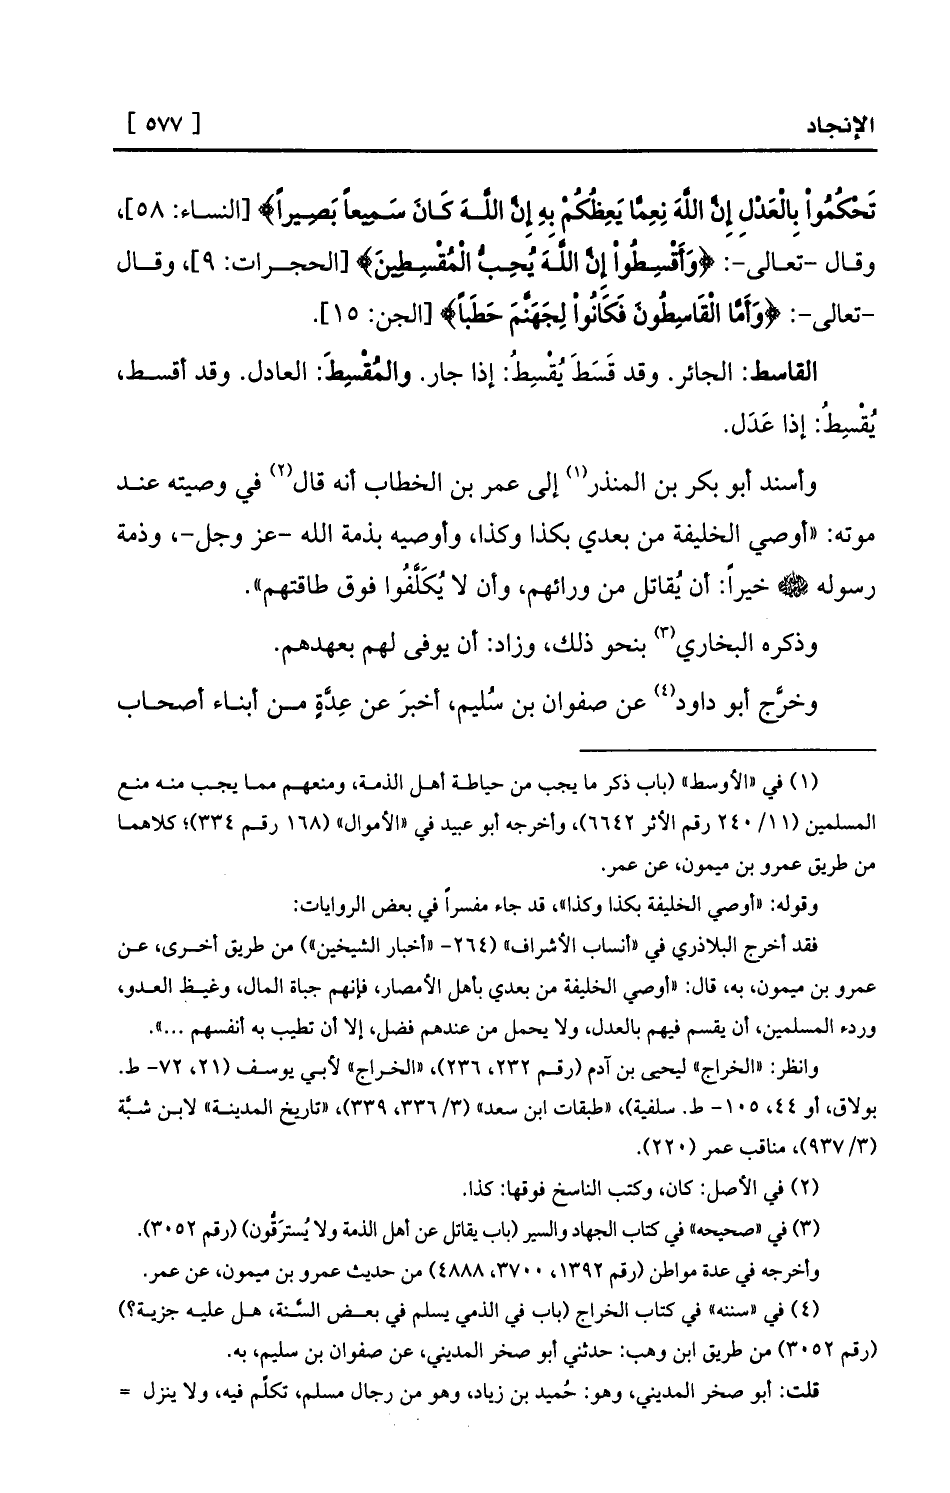 الإنجاد [ ٥٧٧ ]
تَحْكُمُواْ بِالْعَدْلِ إِنَّ اللَّهَ نِعِمَّا يَعِظُكُمْ بِهِ إِنَّ اللَّهَ كَانَ سَمِيعاً بَصِيراً﴾ [النساء: ٥٨]،
وقال -تعالى-: ﴿وَأَقْسِطُواْ إِنَّ اللَّهَ يُحِبُّ الْمُقْسِطِينَ﴾ [الحجرات: ٩]، وقال
-تعالى-: ﴿وَأَمَّا الْقَاسِطُونَ فَكَانُواْ لِجَهَنَّمَ حَطَباً﴾ [الجن: ١٥].
القاسط: الجائر. وقد قَسَطَ يُقْسِطُ: إذا جار. والمُقْسِطَ: العادل. وقد أقسط،
يُقْسِطُ: إذا عَدَل.
وأسند أبو بكر بن المنذر(١) إلى عمر بن الخطاب أنه قال(٢) في وصيته عند
موته: «أوصي الخليفة من بعدي بكذا وكذا، وأوصيه بذمة الله -عز وجل-، وذمة
رسوله ﷺ خيراً: أن يُقاتل من ورائهم، وأن لا يُكَلَّفُوا فوق طاقتهم».
وذكره البخاري(٣) بنحو ذلك، وزاد: أن يوفى لهم بعهدهم.
وخرَّج أبو داود(٤) عن صفوان بن سُليم، أخبرَ عن عِدَّةٍ من أبناء أصحاب
(١) في «الأوسط» (باب ذكر ما يجب من حياطة أهل الذمة، ومنعهم مما يجب منه منع
المسلمين (١١/ ٢٤٠ رقم الأثر ٦٦٤٢)، وأخرجه أبو عبيد في «الأموال» (١٦٨ رقم ٣٣٤)؛ كلاهما
من طريق عمرو بن ميمون، عن عمر.
وقوله: «أوصي الخليفة بكذا وكذا»، قد جاء مفسراً في بعض الروايات:
فقد أخرج البلاذري في «أنساب الأشراف» (٢٦٤- «أخبار الشيخين») من طريق أخرى، عن
عمرو بن ميمون، به، قال: «أوصي الخليفة من بعدي بأهل الأمصار، فإنهم جباة المال، وغيظ العدو،
وردء المسلمين، أن يقسم فيهم بالعدل، ولا يحمل من عندهم فضل، إلا أن تطيب به أنفسهم ...».
وانظر: «الخراج» ليحيى بن آدم (رقم ٢٣٢، ٢٣٦)، «الخراج» لأبي يوسف (٢١، ٧٢- ط.
بولاق، أو ٤٤، ١٠٥- ط. سلفية)، «طبقات ابن سعد» (٣/ ٣٣٦، ٣٣٩)، «تاريخ المدينة» لابن شبَّة
(٣/ ٩٣٧)، مناقب عمر (٢٢٠).
(٢) في الأصل: كان، وكتب الناسخ فوقها: كذا.
(٣) في «صحيحه» في كتاب الجهاد والسير (باب يقاتل عن أهل الذمة ولا يُسترَقُّون) (رقم ٣٠٥٢).
وأخرجه في عدة مواطن (رقم ١٣٩٢، ٣٧٠٠، ٤٨٨٨) من حديث عمرو بن ميمون، عن عمر.
(٤) في «سننه» في كتاب الخراج (باب في الذمي يسلم في بعض السَّنة، هل عليه جزية؟)
(رقم ٣٠٥٢) من طريق ابن وهب: حدثني أبو صخر المديني، عن صفوان بن سليم، به.
قلت: أبو صخر المديني، وهو: حُميد بن زياد، وهو من رجال مسلم، تكلّم فيه، ولا ينزل =